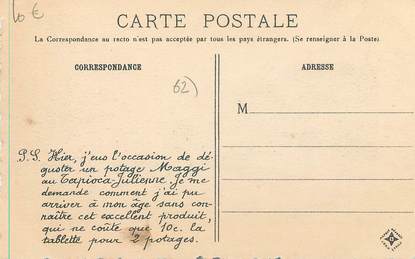 10 €
CARTE POSTALE
La Correspondance au recto n'est pas acceptée par tous les pays étrangers. (Se renseigner à la Poste)
CORRESPONDANCE
ADRESSE
62)
M
P.S. Hier, j'eus l'occasion de dé-
guster un potage Maggi
au Tapioca-Julienne. Je me
demande comment j'ai pu
arriver à mon âge sans con-
naître cet excellent produit,
qui ne coûte que 10c. la
tablette pour 2 potages.